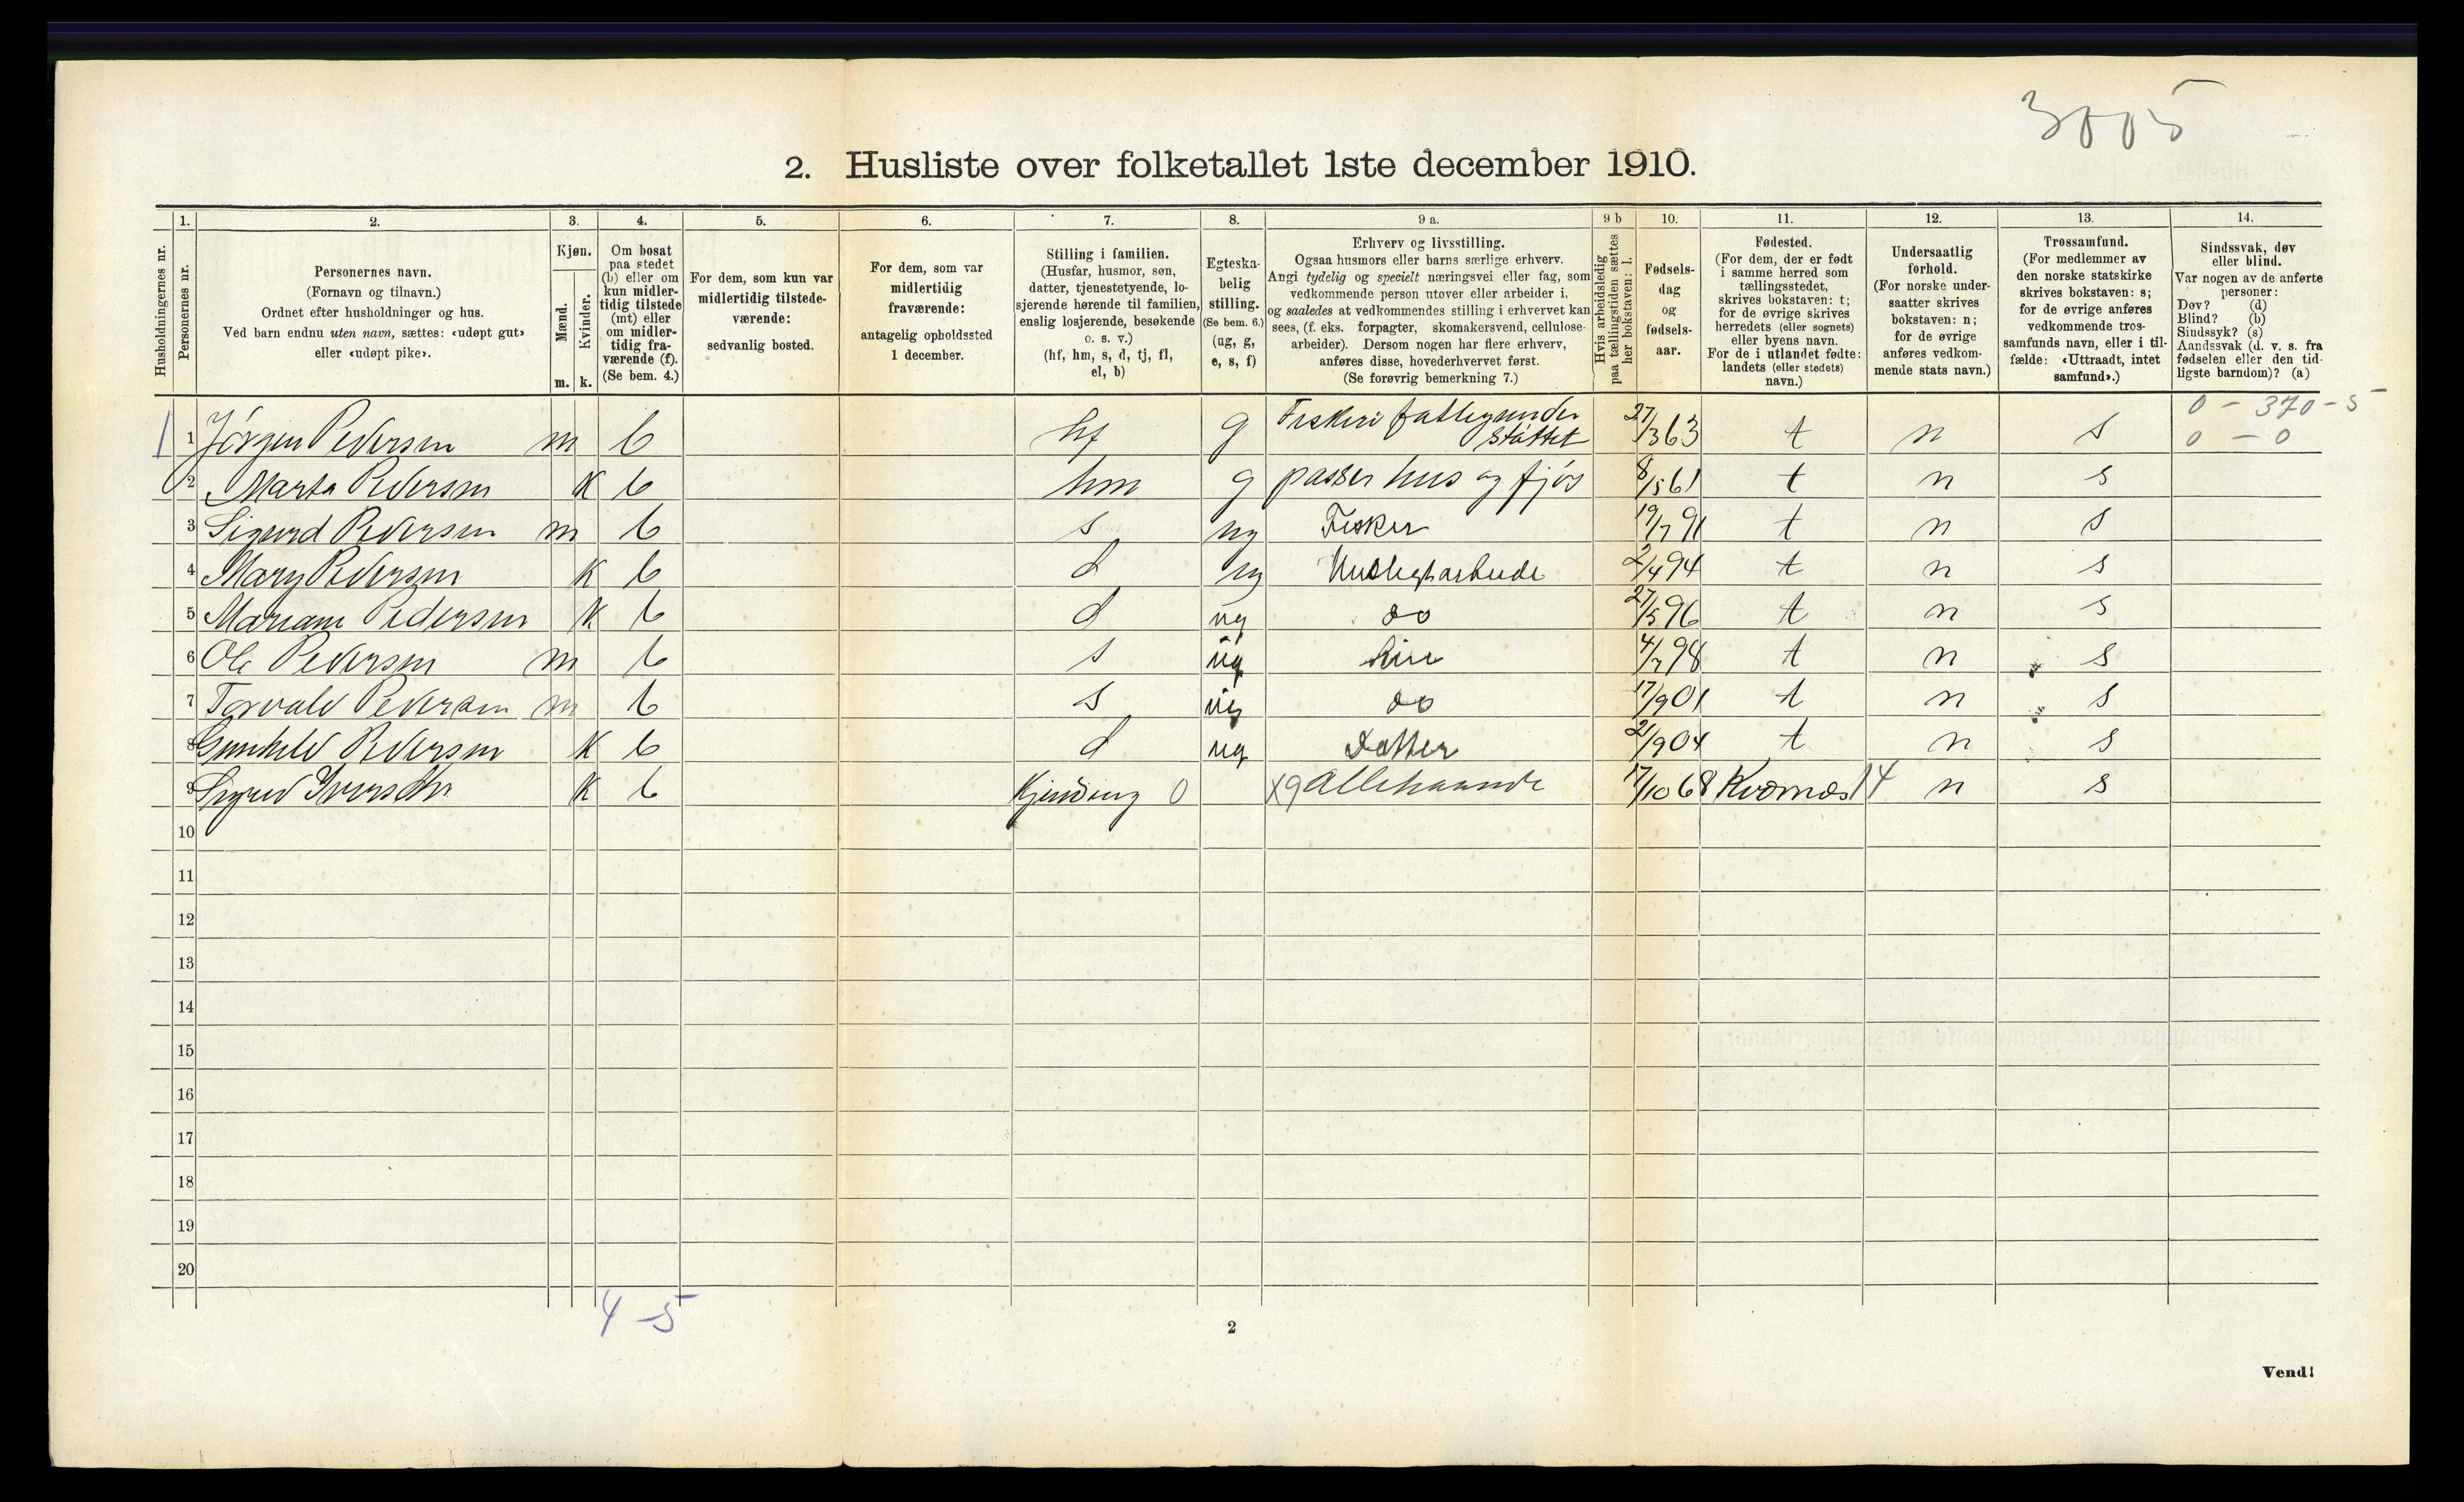 3005
2. Husliste over folketallet 1ste december 1910.
Husholdningernes nr.
1.
Personernes nr.
2.
Personernes navn.
(Fornavn og tilnavn.)
Ordnet efter husholdninger og hus.
Ved barn endnu uten navn, sættes: «udøpt gut»
eller «udøpt pike».
3.
Kjøn.
Mænd.
Kvinder.
m. k.
4.
Om bosat
paa stedet
(b) eller om
kun midler-
tidig tilstede
(mt) eller
om midler-
tidig fra-
værende (f).
(Se bem. 4.)
5.
For dem, som kun var
midlertidig tilstede-
værende:
sedvanlig bosted.
6.
For dem, som var
midlertidig
fraværende:
antagelig opholdssted
1 december.
7.
Stilling i familien.
(Husfar, husmor, søn,
datter, tjenestetyende, lo-
sjerende hørende til familien,
enslig losjerende, besøkende
o. s. v.)
(hf, hm, s, d, tj, fl,
el, b)
8.
Egteska-
belig
stilling.
(Se bem. 6.)
(ug, g,
e, s, f)
9 a.
Erhverv og livsstilling.
Ogsaa husmors eller barns særlige erhverv.
Angi tydelig og specielt næringsvei eller fag, som
vedkommende person utøver eller arbeider i,
og saaledes at vedkommendes stilling i erhvervet kan
sees, (f. eks. forpagter, skomakersvend, cellulose-
arbeider). Dersom nogen har flere erhverv,
anføres disse, hovederhvervet først.
(Se forøvrig bemerkning 7.)
9 b
Hvis arbeidsledig
paa tællingstiden sættes
her bokstaven: l.
10.
Fødsels-
dag
og
fødsels-
aar.
11.
Fødested.
(For dem, der er født
i samme herred som
tællingsstedet,
skrives bokstaven: t;
for de øvrige skrives
herredets (eller sognets)
eller byens navn.
For de i utlandet fødte:
landets (eller stedets)
navn.)
12.
Undersaatlig
forhold.
(For norske under-
saatter skrives
bokstaven: n;
for de øvrige
anføres vedkom-
mende stats navn.)
13.
Trossamfund.
(For medlemmer av
den norske statskirke
skrives bokstaven: s;
for de øvrige anføres
vedkommende tros-
samfunds navn, eller i til-
fælde: «Uttraadt, intet
samfund».)
14.
Sindssvak, døv
eller blind.
Var nogen av de anførte
personer:
Døv? (d)
Blind? (b)
Sindssyk? (s)
Aandssvak (d. v. s. fra
fødselen eller den tid-
ligste barndom)? (a)
0 - 370-5
1 1 Jörgen Pedersen m b hf g Fiskeri fattigunder støttet 27/3 63 t n s 0 - 0
2 Marta Pedersen K b hm g passer hus og fjös 8/5 61 t n s
3 Sigurd Pedersen m b s ug Fisker 19/7 91 t n s
4 Mary Pedersen K b d ug Husligtarbeide 2/4 94 t n s
5 Mariane Pedersen K b d ug do 27/5 96 t n s
6 Ole Pedersen m b s ug 4/7 98 t n s
7 Torvald Pedersen m b s ug do 17/9 01 t n s
8 Gunhild Pedersen K b d ug Datter 21/9 04 t n s
9 Sigrid K b 0 xg Allehaande 17/10 68 Kværnæs 14 n s
10
11
12
13
14
15
16
17
18
19
20
4-5
2
Vend!